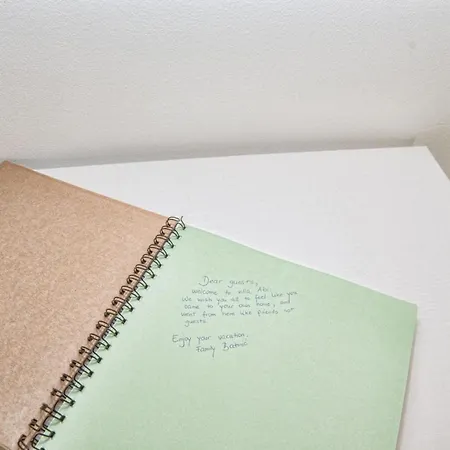 Dear guests,
welcome to villa
We wish you all to feel like you
came to your own home, and
went from here like friends
guests.
Enjoy your vacation.
Family